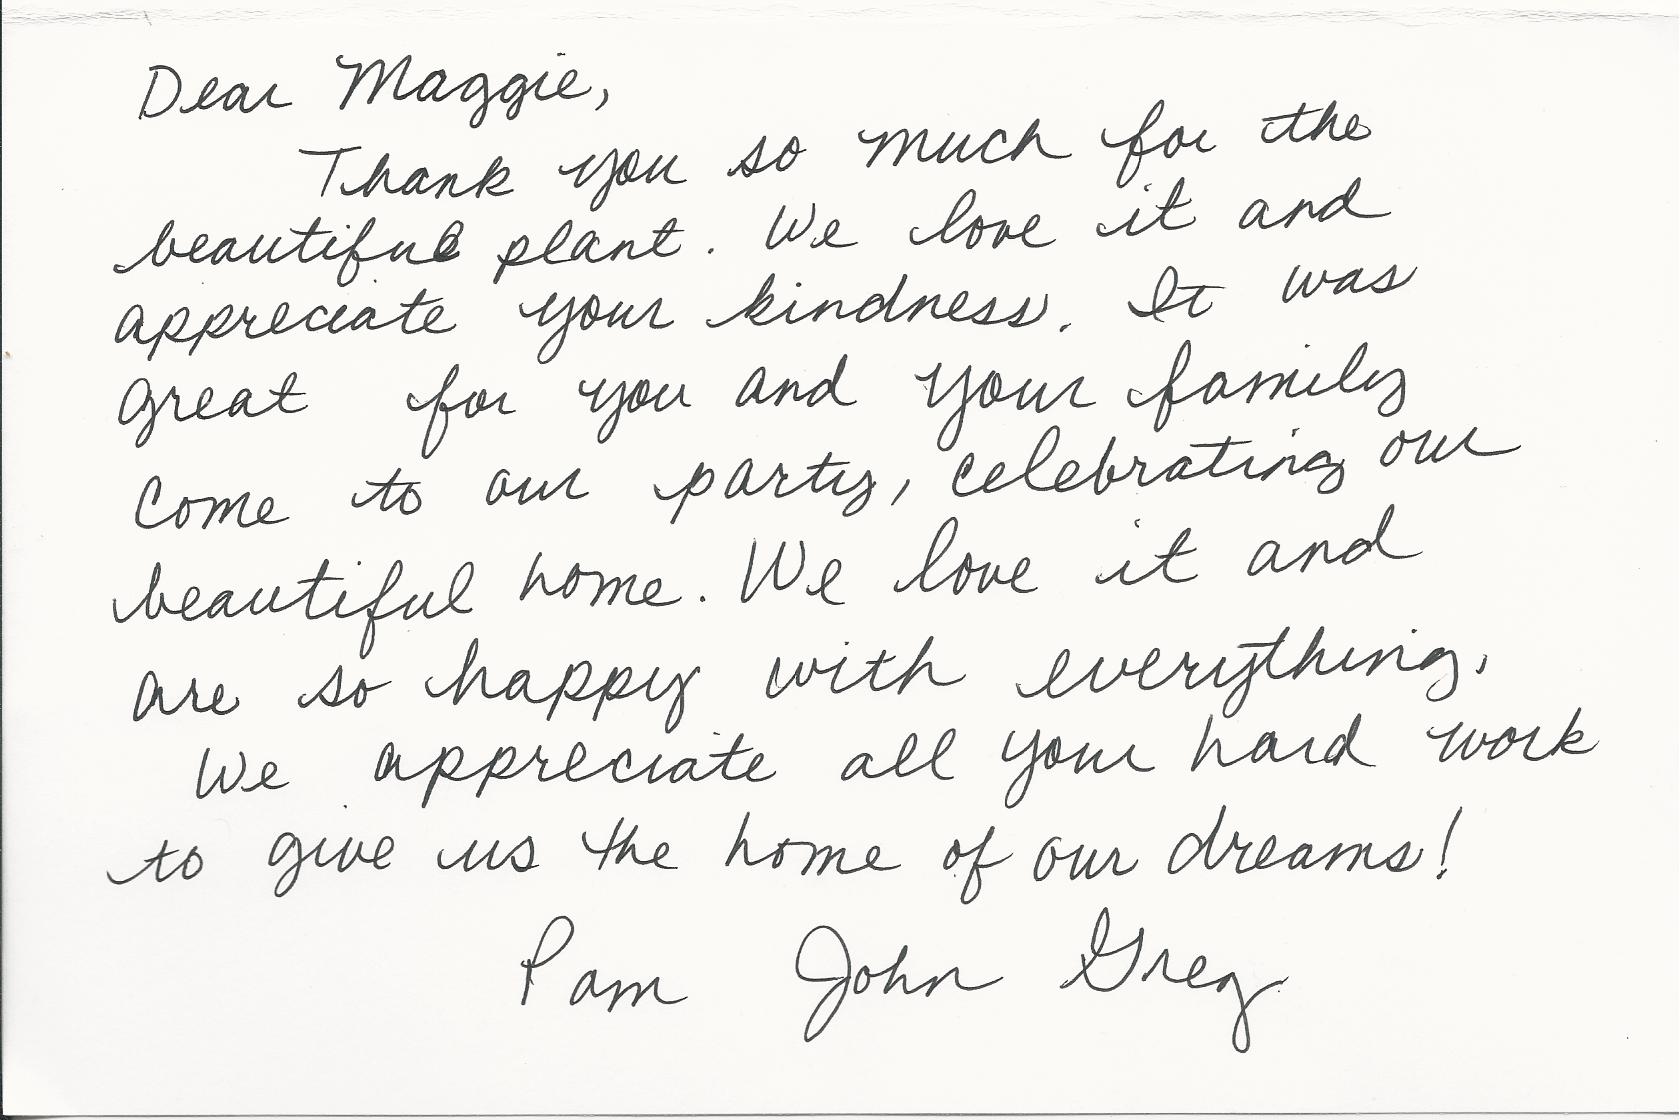 Dear Maggie,
Thank you so much for the
beautiful plant. We love it and
appreciate your kindness. It was
great for you and your family
come to our party, celebrating our
beautiful home. We love it and
are so happy with everything.
We appreciate all your hard work
to give us the home of our dreams!
Pam John Greg